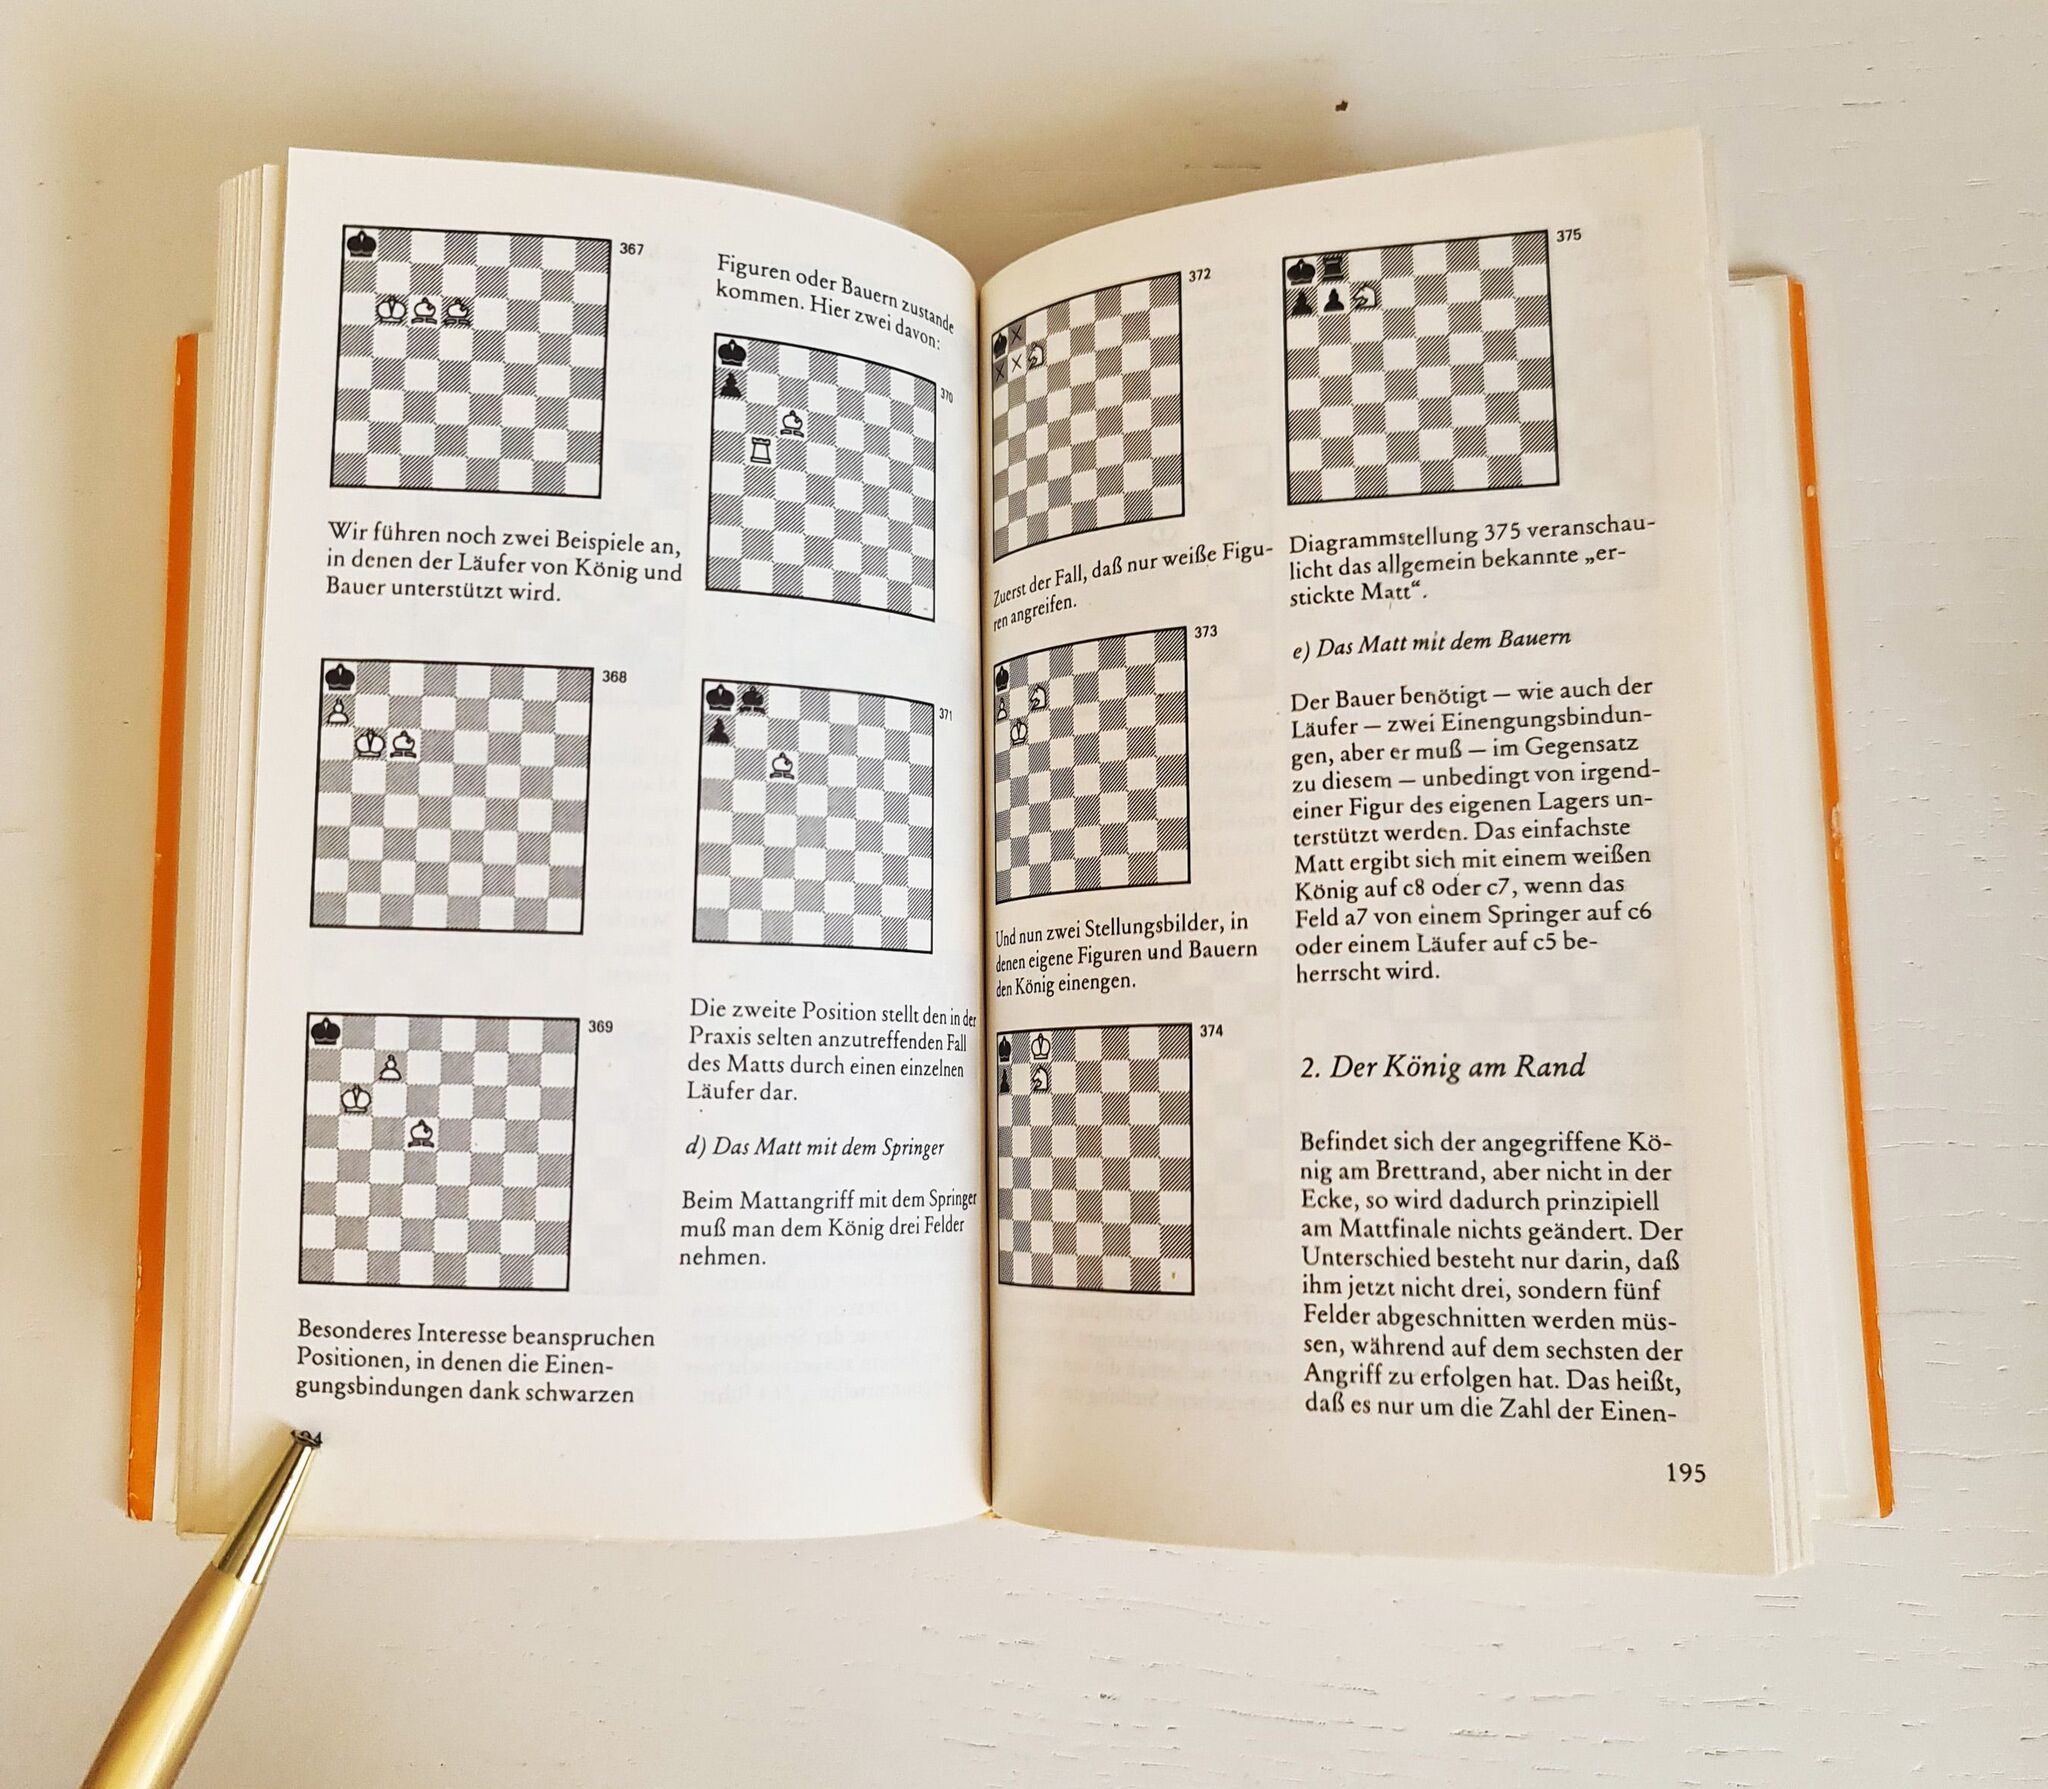 367
Wir führen noch zwei Beispiele an,
in denen der Läufer von König und
Bauer unterstützt wird.
368
369
Besonderes Interesse beanspruchen
Positionen, in denen die Einen-
gungsbindungen dank schwarzen
Figuren oder Bauern zustande
kommen. Hier zwei davon:
370
371
Die zweite Position stellt den in der
Praxis selten anzutreffenden Fall
des Matts durch einen einzelnen
Läufer dar.
d) Das Matt mit dem Springer
Beim Mattangriff mit dem Springer
muß man dem König drei Felder
nehmen.
372
Zuerst der Fall, daß nur weiße Figu-
ren angreifen.
373
Und nun zwei Stellungsbilder, in
denen eigene Figuren und Bauern
den König einengen.
374
375
Diagrammstellung 375 veranschau-
licht das allgemein bekannte „er-
stickte Matt“.
e) Das Matt mit dem Bauern
Der Bauer benötigt — wie auch der
Läufer — zwei Einengungsbindun-
gen, aber er muß — im Gegensatz
zu diesem — unbedingt von irgend-
einer Figur des eigenen Lagers un-
terstützt werden. Das einfachste
Matt ergibt sich mit einem weißen
König auf c8 oder c7, wenn das
Feld a7 von einem Springer auf c6
oder einem Läufer auf c5 be-
herrscht wird.
2. Der König am Rand
Befindet sich der angegriffene Kö-
nig am Brettrand, aber nicht in der
Ecke, so wird dadurch prinzipiell
am Mattfinale nichts geändert. Der
Unterschied besteht nur darin, daß
ihm jetzt nicht drei, sondern fünf
Felder abgeschnitten werden müs-
sen, während auf dem sechsten der
Angriff zu erfolgen hat. Das heißt,
daß es nur um die Zahl der Einen-
195